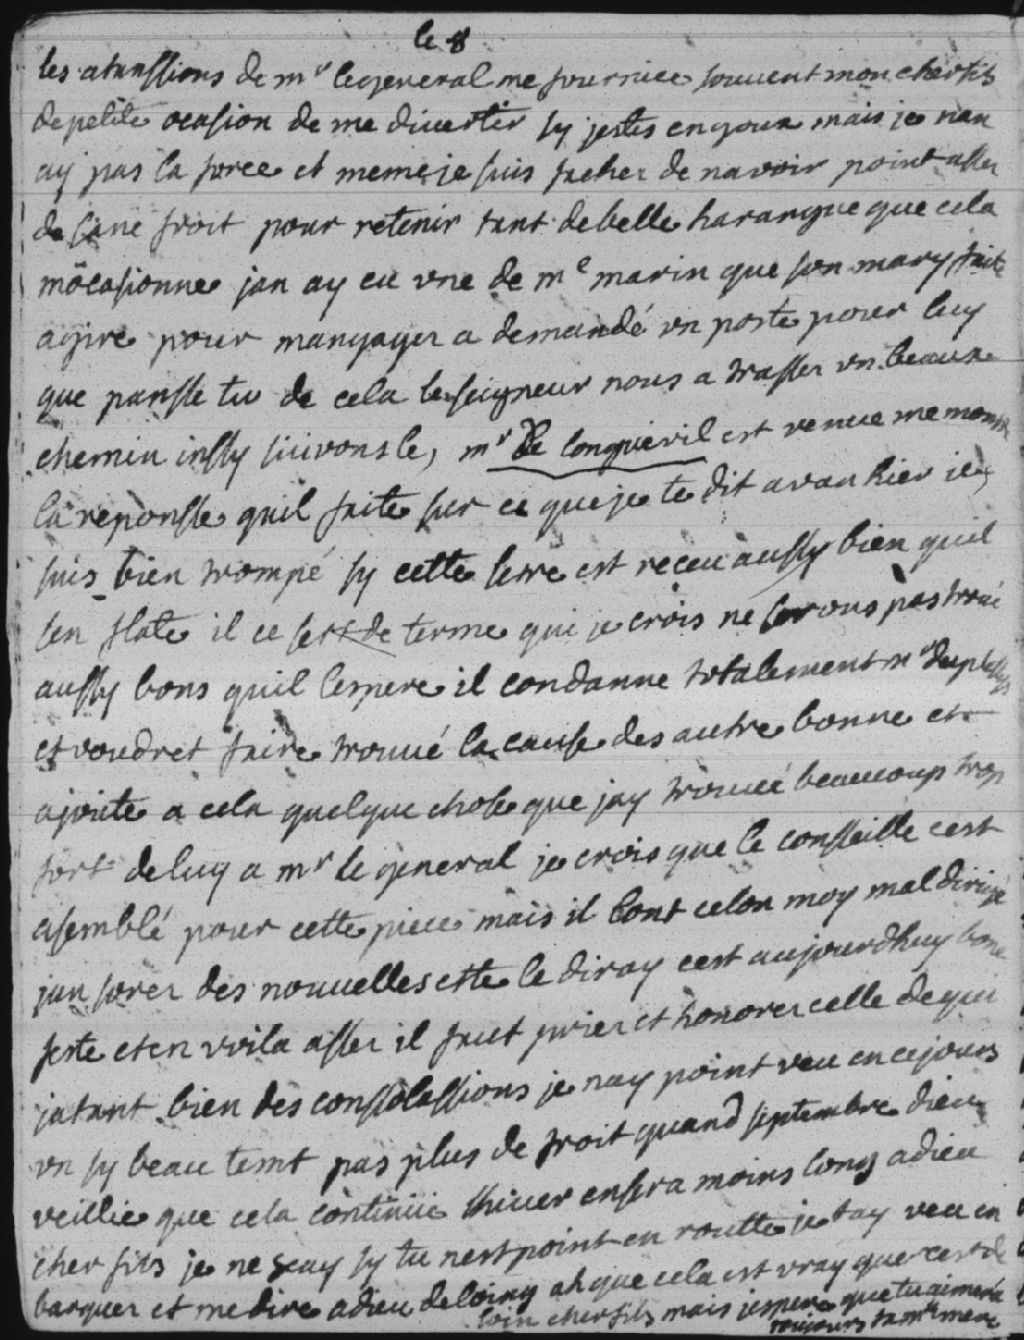 le 8
les atanssions de mr le general me fournice souvent mon cher fils
de petite ocasion de me divertir sy jestes en goux mais je nan
ay pas la force et meme je suis facher de navoir point asses
de froit pour retenir tant de belle harangue que cela
mocasionne jan ay eu vne de me marin que son mary faite
agire pour mangager a demandé vn poste pour luy
que pansse tu de cela le seigneur nous a trasser vn beaux
chemin inssy suivons le, mr de longueuil est venue me montré
la reponsse quil faite sur ce que je te dit avan hier je
suis bien trompé sy cette lettre est receu aussy bien quil
sen flate il ce sert de terme qui je crois ne seronts pas trové
aussy bons quil lespere il condanne totalement mr duplessys
et voudret faire trouvé la cause des autre bonne et
ajoute a cela quelque chose que jay trouvé beaucoup trop
fort de luy a mr le general je crois que le consseille cest
asemblé pour cette piece mais il lont celon moy mal dirigé
jan sorez des nouvelles et te le diray cest aujourdhuy bone
feste et en voila asser il faut prier et honorer celle de qui
jatant bien des conssolassions je nay point veu en ce jours
vn sy beau temt pas plus de froit quand septembre dieu
veillie que cela continüe lhiver ensera moins long adieu
cher fils je ne scay sy tu nest point en routte je tay veu en
barquer et me dire adieu de loing ah que cela est vray que cest de
loin cher fils mais jespere que tu aimera
toujours ta mere